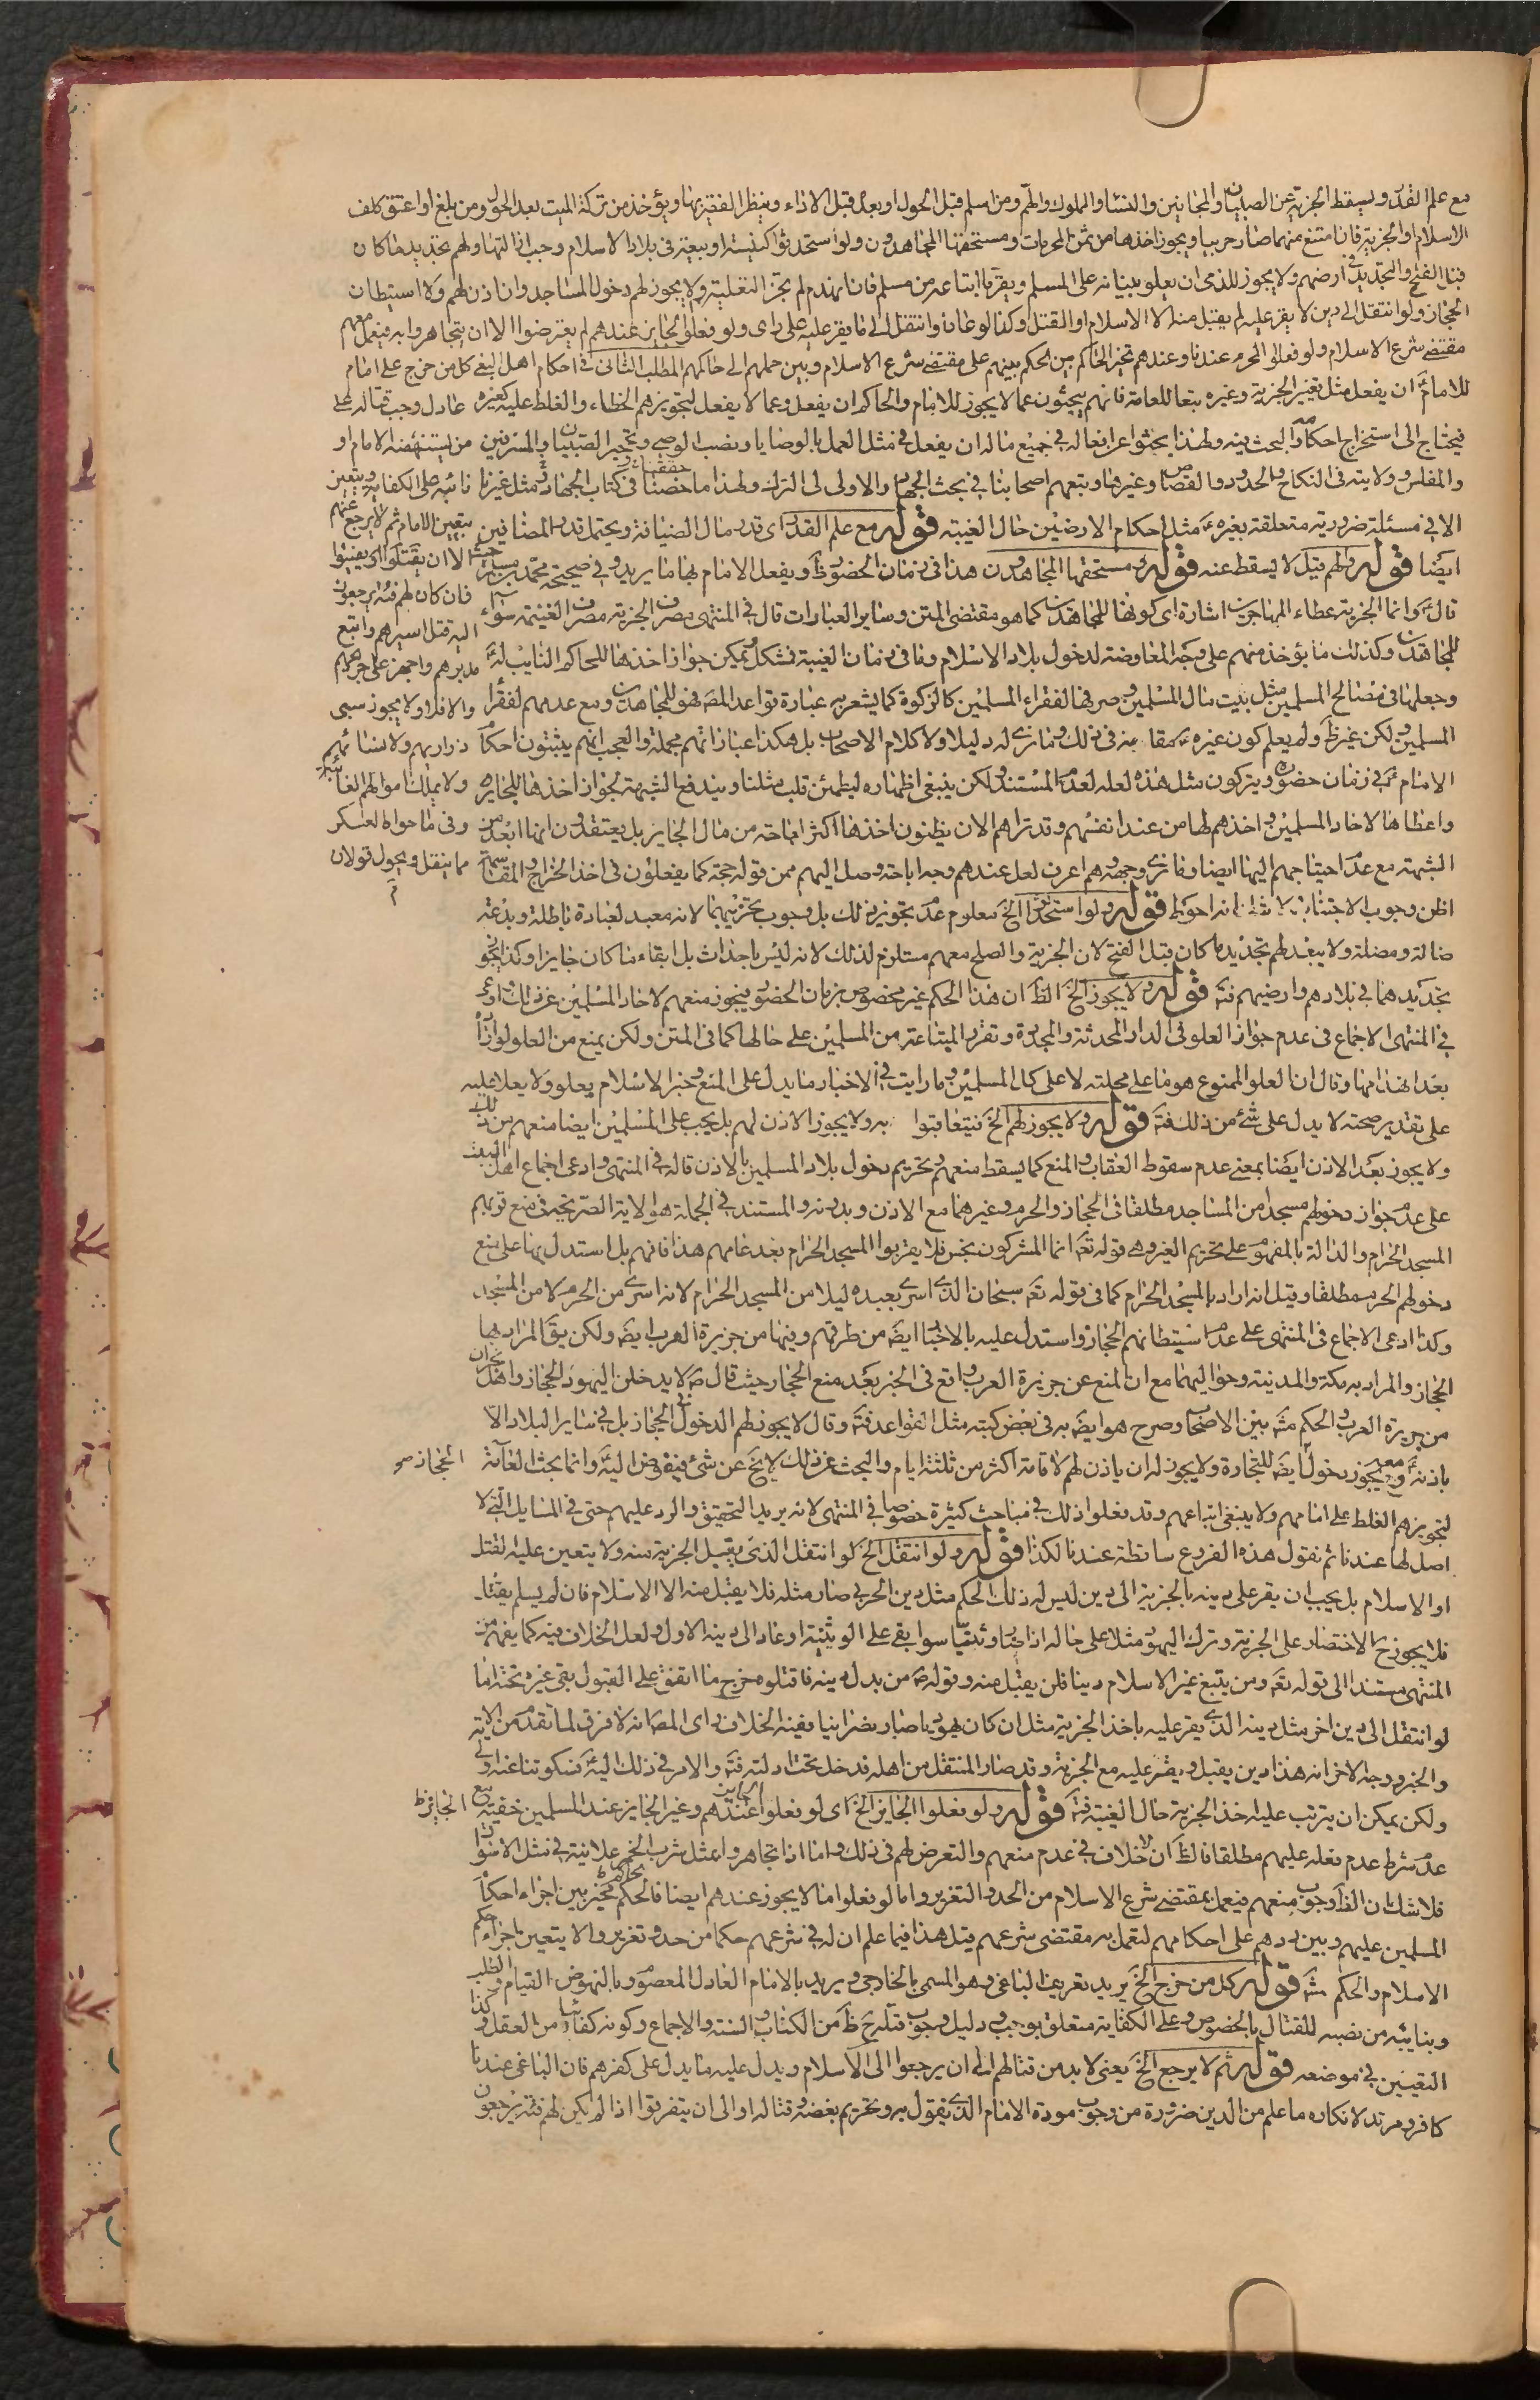 مع علم القدر ويسقط الجزية عن الصبيان والمجانين والنساء والمملوك والهم ومن اسلم قبل الحول او بعده قبل الاداء وينظر الفقير بها ويؤخذ من تركة الميت بعد الحول ومن بلغ او اعتق كلف
الاسلام او الجزية فان امتنع منهما صار حربيا ويجوز اخذها من ثمن المحرمات ومستحقها المجاهدون ولو استحدثوا كنيسة او بيعة في بلاد الاسلام وجب ازالتها ولهم تجديد ما كان
قبل الفتح والتجديد في ارضهم ولا يجوز للذمي ان يعلو ببنيانه على المسلم ويقر ما ابتاعه من مسلم فان انهدم لم تجز التعلية ولا يجوز لهم دخول المساجد وان اذن لهم ولا استيطان
الحجاز ولو انتقل الى دين لا يقر عليه لم يقبل منه الا الاسلام او القتل وكذا لو عاد او انتقل الى ما يقر عليه على راى ولو فعلوا الجايز عندهم لم يعترضوا الا ان يتجاهروا به فيعمل معهم
مقتضى شرع الاسلام ولو فعلوا المحرم عندنا وعندهم تخير الحاكم بين الحكم بينهم على مقتضى شرع الاسلام وبين حملهم الى حاكمهم المطلب الثاني في احكام اهل البغي كل من خرج على امام
للامام ان يفعل مثل تغيير الجزية وغيره تبعا للعامة فانهم يبحثون عما لا يجوز للامام والحاكم ان يفعل وعما لا يفعل لتجويزهم الخطاء والغلط عليه كغيره عادل وجب قتاله على
فيحتاج الى استخراج احكامه والبحث فيه ولهذا بحثوا عن افعاله في جميع ماله ان يفعل في مثل العمل بالوصايا ونصب الوصي وتحجير الصبيان والمسرفين من يستنهضه الامام او
والمفلس وولايته في النكاح والحدود والقصاص وغيرها وتبعهم اصحابنا في بحث الجهاد والاولى لى الترك ولهذا ما خضنا في كتاب الجهاد مثل غيرنا نائبه على الكفاية ويتعين
الا في مسئلة ضرورية متعلقة بغيره مثل احكام الارضين حال الغيبة قوله مع علم القدر اى قدر مال الضيافة ويحتمل قدر المضافين بتعيين الامام ثم لا يرجع عنهم
ايضا قوله ولهم قيل لا يسقط عنه قوله ومستحقها المجاهدون هذا في زمان الحضور ظ ويفعل الامام بها ما يريد وفي صحيحة محمد بن مسلم الا ان يقتلوا او يفيئوا
قال وانما الجزية عطاء المهاجرين اشارة اى كونها للمجاهدين كما هو مقتضى المتن وساير العبارات قال في المنتهى مصرف الجزية مصرف الغنيمة سواء فان كان لهم فئة يرجعون
للمجاهدين وكذلك ما يؤخذ منهم على وجه المعاوضة لدخول بلاد الاسلام وما في زمان الغيبة فمشكل ويمكن جواز اخذها للحاكم النايب له اليه قتل اسيرهم واتبع مدبرهم واجهز على جريحهم
وجعلها في مصالح المسلمين مثل بيت مال المسلمين وصرفها لفقراء المسلمين كالزكوة كما يشعر به عبارة قواعد المص فهو للمجاهدين ومع عدمهم لفقراء والا فلا ولا يجوز سبى
المسلمين لكن غيره ظ ولم يعلم كون غيره بمقا مه في ذلك وما نرى له دليلا ولا كلام الاصحاب بل هكذا عباراتهم مجملة والعجب انهم يثبتون احكام ذراريهم ولا نسائهم
الامام في زمان حضوره ويتركون مثل هذه لعله لعدم المستند ولكن ينبغي اظهاره ليطمئن قلب مثلنا ويندفع الشبهة بجواز اخذها للجايز ولا يملك اموالهم الغائبة
واعطاها لاحاد المسلمين واخذهم لها من عند انفسهم وقد تراهم الان يظنون اخذها اكثر اباحة من مال الجايز بل يعتقدون انها ابعد من وفي ما حواه العسكر
الشبهة مع عدم احتياجهم اليها ايضا وما نرى وجهه وهم اعرف لعل عندهم وجه اباحة وصل اليهم ممن قوله حجة كما يفعلون في اخذ الخراج والمقاسمة مما ينقل ويحول قولان
اظن وجوب الاجتناب ولا شك انه احوط قوله ولو استحدثوا الخ معلوم عدم تجويز ذلك بل وجوب تخريبها لانه معبد لعبادة باطلة وبدعة
ضالة ومضلة ولا يبعد لهم تجديد ما كان قبل الفتح لان الجزية والصلح معهم مستلزم لذلك لانه ليس باحداث بل ابقاء ما كان جايزا وكذا يجوز
تجديدهما في بلادهم وارضيهم فته قوله ولا يجوز الخ الظ ان هذا الحكم غير مخصوص بزمان الحضور فيجوز منعهم لاحاد المسلمين عن ذلك وادعى
في المنتهى الاجماع في عدم جواز العلو في الدار المحدثة والمجددة وتقرير المبتاعة من المسلمين على حالها كما في المتن ولكن يمنع من العلو لو ارادوا
بعد انهدامها وقال ان العلو الممنوع هو ما على محلته لا على كل المسلمين وما رايت في الاخبار ما يدل على المنع وخبر الاسلام يعلو ولا يعلا عليه
على تقدير صحته لا يدل على شئ من ذلك فته قوله ولا يجوز لهم الخ فيتعاقبوا به ولا يجوز الاذن لهم بل يجب على المسلمين ايضا منعهم من ذلك
ولا يجوز بعد الاذن ايضا بمعنى عدم سقوط العقاب والمنع كما يسقط منعهم وتحريم دخول بلاد المسلمين بالاذن قاله في المنتهى وادعى اجماع اهل البيت
على عدم جواز دخولهم مسجدا من المساجد مطلقا في الحجاز والحرم وغيرهما مع الاذن وبدونه والمستند في الجملة هو الاية الصريحة في منع قربهم
المسجد الحرام والدالة بالمفهوم على تحريم الغير وهي قوله تعه انما المشركون نجس فلا يقربوا المسجد الحرام بعد عامهم هذا فانهم بل استدل بها على منع
دخولهم الحرم مطلقا وقيل انه اراد بالمسجد الحرام كما في قوله تعه سبحان الذى اسرى بعبده ليلا من المسجد الحرام لانه اسرى من الحرم لا من المسجد
وكذا ادعى الاجماع في المنتهى على عدم استيطانهم الحجاز واستدل عليه بالاخبار ايضه من طرقهم وفيها من جزيرة العرب ايضه ولكن يق المراد بها
الحجاز والمراد به مكة والمدينة وحواليهما مع ان المنع عن جزيرة العرب واقع في الخبر بعد منع الحجاز حيث قال ص لا يدخلن اليهود الحجاز واهل نجران
من جزيرة العرب والحكم مشه بين الاصحاب وصرح هو ايضه به في بعض كتبه مثل القواعد فته وقال لا يجوز لهم الدخول في الحجاز بل في ساير البلاد الا
باذنه ومعه يجوز دخوله ايضه للتجارة ولا يجوز له ان ياذن لهم لاقامة اكثر من ثلثة ايام والبحث عن ذلك لا يخ عن شئ فيفوض اليه وانما بحث العامة
الحجاز صح
لتجويزهم الغلط على امامهم ولا ينبغي اتباعهم وقد فعلوا ذلك في مباحث كثيرة خصوصا في المنتهى لانه يريد التحقيق والرد عليهم حتى في المسايل التي لا
اصل لها عندنا ثم نقول هذه الفروع ساقطة عندنا لكذا قوله ولو انتقل الخ لو انتقل الذى يقبل الجزية منه ولا يتعين عليه القتل
او الاسلام بل يجب ان يقر على دينه بالجزية الى دين ليس له ذلك الحكم مثل دين الحربي صار مثله فلا يقبل منه الا الاسلام فان لم يسلم يقتل
فلا يجوز ح الاختصار على الجزية وترك اليهود مثلا على حاله اذا صار وثنيا سوا بقى على الوثنية او عاد الى دينه الاول ولعل الخلاف فيه كما يفهم من
المنتهى مستندا الى قوله تعه ومن يبتغ غير الاسلام دينا فلن يقبل منه وقوله ص من بدل دينه فاقتلوه خرج ما اتفق على القبول بقى غيره تحته اما
لو انتقل الى دين اخر مثل دينه الذى يقر عليه باخذ الجزية مثل ان كان يهوديا صار نصرانيا ففيه الخلاف راى المص انه لا فرق لما تقدم من الاية
والخبر ووجه الاخر انه هذا دين يقبل ويقر عليه مع الجزية وقد صار المنتقل من اهله فدخل تحت ادلته فته والامر في ذلك اليه فسكوتنا عنه اولى
ولكن يمكن ان يترتب عليه اخذ الجزية حال الغيبة فته قوله ولو فعلوا الجايز الخ اى لو فعلوا الجايز عندهم وغير الجايز عند المسلمين خفية مع
عدم شرط عدم فعله عليهم مطلقا فالظ ان لا خلاف في عدم منعهم والتعرض لهم في ذلك واما اذا تجاهروا بمثل شرب الخمر علانية في مثل الاسواق
فلا شك ان الظ وجوب منعهم فيعمل بمقتضى شرع الاسلام من الحد والتعزير واما لو فعلوا ما لا يجوز عندهم ايضا فالحاكم مخير بين اجراء احكام
المسلمين عليهم وبين ردهم على احكامهم لتعمل به مقتضى شرعهم قيل هذا فيما علم ان له في شرعهم حكما من حد وتعزير والا يتعين باجراء حكم
الاسلام والحكم مشه قوله كل من خرج الخ يريد تعريف الباغي وهو المسمى بالخارجي ويريد بالامام العادل المعصوم وبالنهوض القيام والطلب
وبنايبه من نصبه للقتال بالخصوص وعلى الكفاية متعلق بوجب ودليل وجوب قتله ح ظ من الكتاب والسنة والاجماع وكونه كفائيا من العقل وكذا
التعيين في موضعه قوله ثم لا يرجع الخ يعنى لا بد من قتالهم الى ان يرجعوا الى الاسلام ويدل عليه ما يدل على كفرهم فان الباغي عندنا
كافر ومرتد لانكاره ما علم من الدين ضرورة من وجوب مودة الامام الذى يقول به وتحريم بغضه وقتاله او الى ان يتفرقوا اذا لم يكن لهم فئة يرجعون